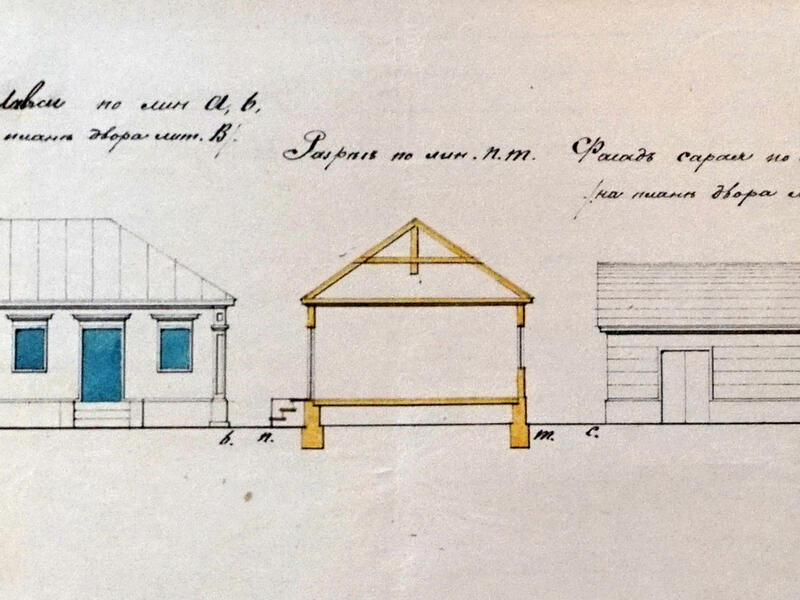 по лин а, b,
планъ двора лит. В/.
Разрѣзъ по лин. п. т.
Фасадъ сарая по
/на планъ двора
b. п. т. с.